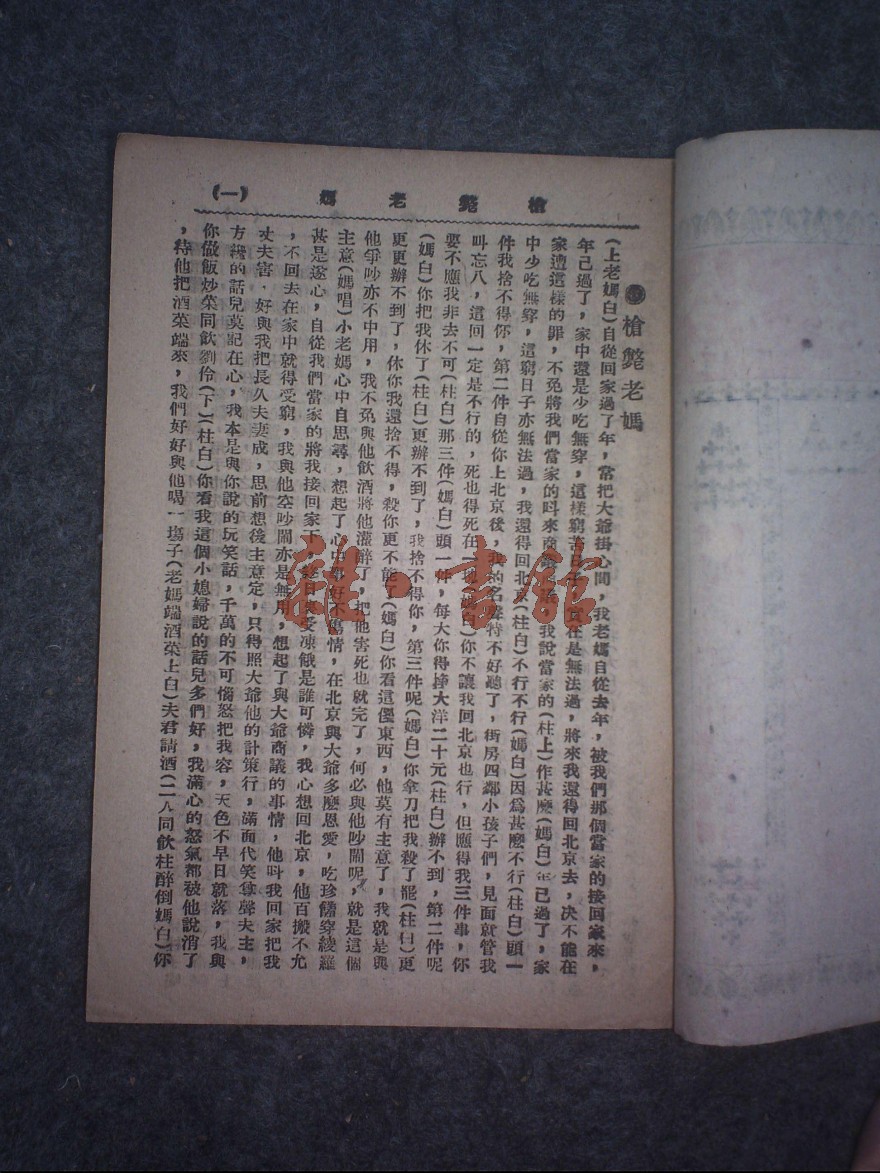 槍斃老媽 (一)
◉槍斃老媽
(上老媽白)自從回家過了年,常把大爺掛心間,我老媽自從去年,被我們那個當家的接回家來,
年已過了,家中還是少吃無穿,這樣窮苦日子,實在是無法過,將來我還得回北京去,決不能在
家遭這樣的罪,不免將我們當家的叫來商議,我說當家的(柱上)作甚麼(媽白)年已過了,家
中少吃無穿,這窮日子亦無法過,我還得回北京(柱白)不行不行(媽白)因爲甚麼不行(柱白)頭一
件我捨不得你,第二件自從你上北京後,我的名聲特不好聽了,街房四鄰小孩子們,見面就管我
叫忘八,這回一定是不行的,死也得死在一塊(媽白)你不讓我回北京也行,但應得我三件事,你
要不應我非去不可(柱白)那三件(媽白)頭一件,每大你得掙大洋二十元(柱白)辦不到,第二件呢
(媽白)你把我休了(柱白)更辦不到了,我捨不得你,第三件呢(媽白)你拿刀把我殺了罷(柱白)更
更更辦不到了,休你我還捨不得,殺你更不能了(媽白)你看這儍東西,他莫有主意了,我就是與
他爭吵亦不中用,我不免與他飲酒將他灌醉了,把他害死也就完了,何必與他吵鬧呢,就是這個
主意(媽唱)小老媽心中自思尋,想起了心中事好不傷情,在北京與大爺多麼恩愛,吃珍饈穿綾羅
甚是遂心,自從我們當家的將我接回家下,終日裏受凍餓是誰可憐,我心想回北京,他百搬不允
,不回去在家中就得受窮,我與他空吵鬧亦是無用,想起了與大爺商議的事情,他叫我回家把我
丈夫害,好與我把長久夫妻成,思前想後主意定,只得照大爺他的計策行,滿面代笑尊聲夫主,
方纔的話兒莫記在心,我本是與你說的玩笑話,千萬的不可惱怒把我容,天色不早日就落,我與
你做飯炒菜同飲劉伶(下)(柱白)你看我這個小媳婦說的話兒多們好,我滿心的怒氣都被他說消了
,待他把酒菜端來,我們好好與他喝一塲子(老媽端酒菜上白)夫君請酒(二人同飲柱醉倒媽白)你
雜·書館